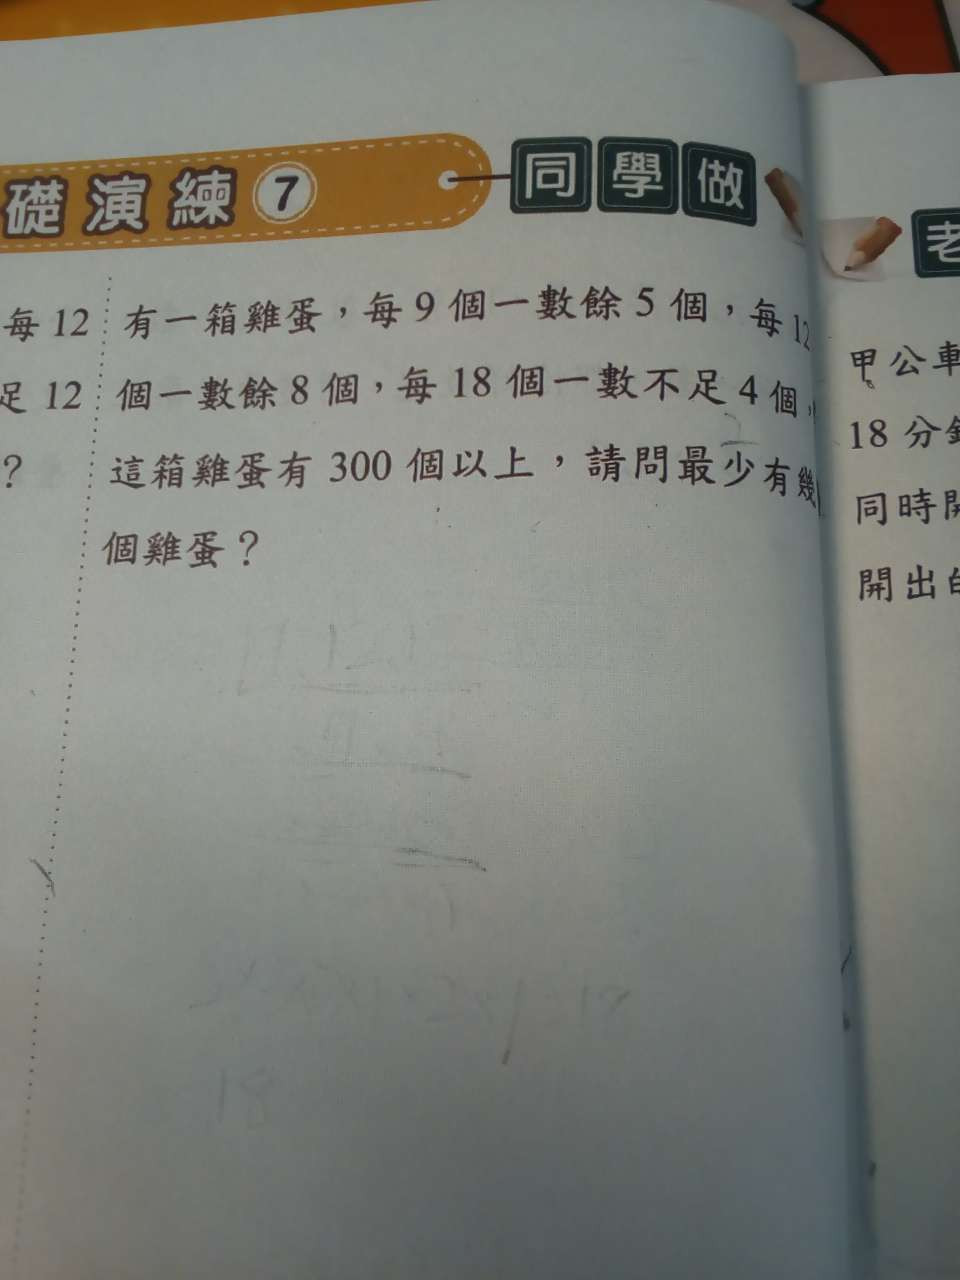 礎演練7 同學做
每12
足12
?
有一箱雞蛋，每9個一數餘5個，每12
個一數餘8個，每18個一數不足4個，
這箱雞蛋有300個以上，請問最少有幾
個雞蛋？
老
甲公車
18分鐘
同時開
開出的